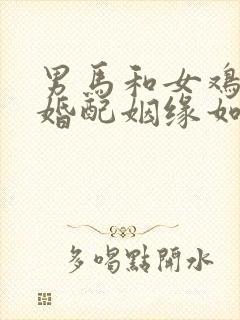 男馬和女鸡
婚配姻缘如
多喝點開水